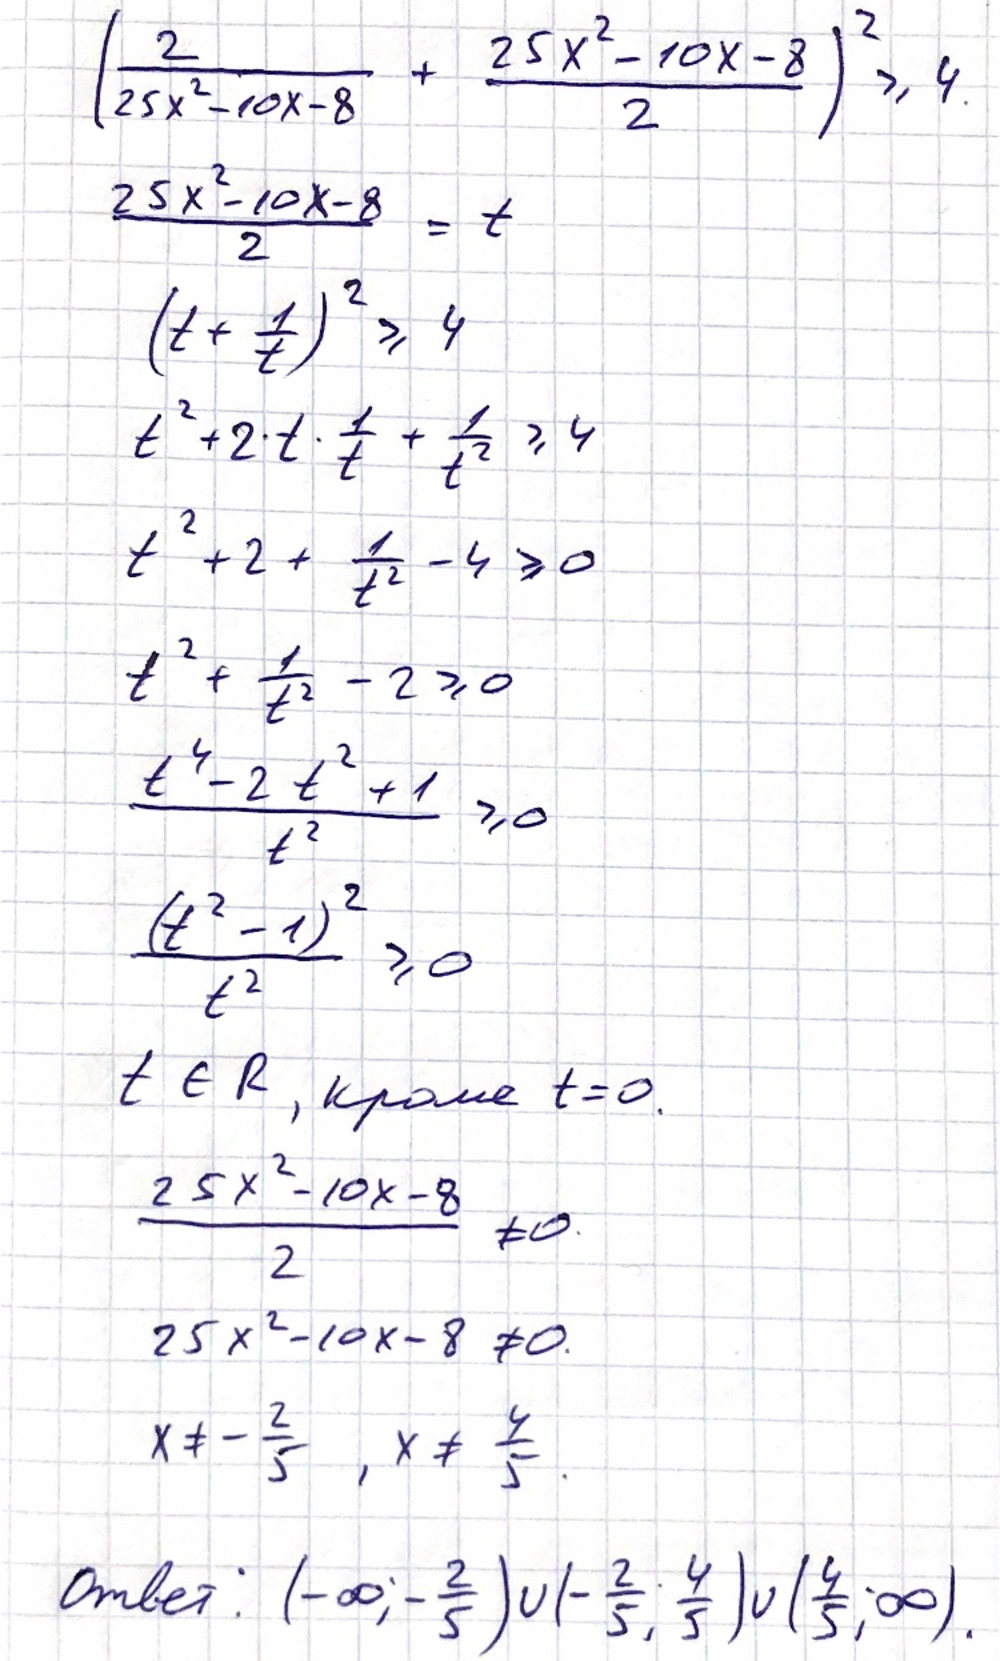 (2/(25x²-10x-8) + (25x²-10x-8)/2)² ⩾ 4.
(25x²-10x-8)/2 = t
(t + 1/t)² ⩾ 4
t² + 2·t·1/t + 1/t² ⩾ 4
t² + 2 + 1/t² - 4 ⩾ 0
t² + 1/t² - 2 ⩾ 0
(t⁴ - 2t² + 1)/t² ⩾ 0
(t² - 1)²/t² ⩾ 0
t ∈ R, кроме t=0.
(25x²-10x-8)/2 ≠ 0.
25x²-10x-8 ≠ 0.
x ≠ -2/5, x ≠ 4/5.
Ответ: (-∞; -2/5) ∪ (-2/5; 4/5) ∪ (4/5; ∞).